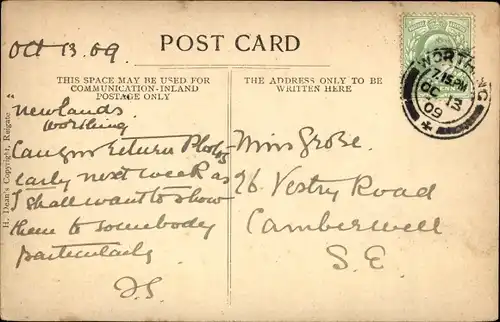 Oct 13.09
POST CARD
THIS SPACE MAY BE USED FOR
COMMUNICATION-INLAND
POSTAGE ONLY
THE ADDRESS ONLY TO BE
WRITTEN HERE
WORTHING
7.15 PM
OC 13
09
"Newlands
Worthing
Can you return Photos
early next week as
I shall want to show
them to somebody
particularly
Miss Grose.
26 Vestry Road
Camberwell
S.E
H. Dean's Copyright, Reigate